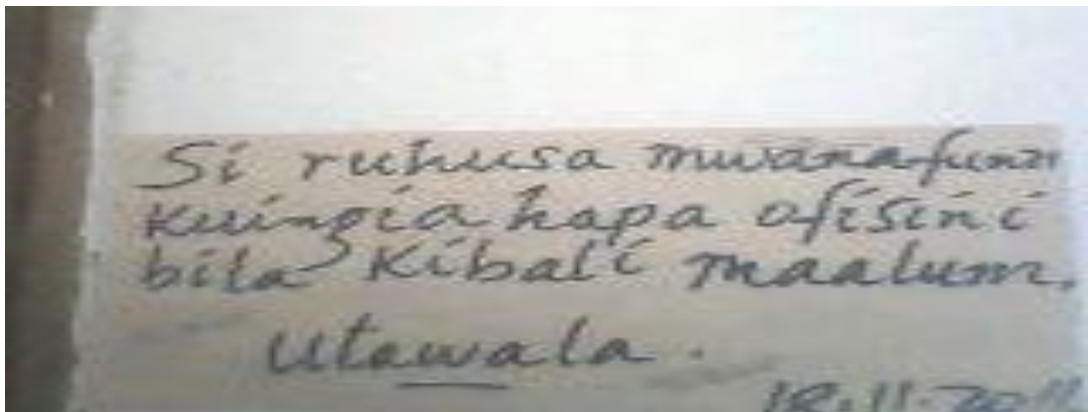 Si ruhusa mwanafunzi
kuingia hapa ofisini
bila Kibali maalum.
Utawala.